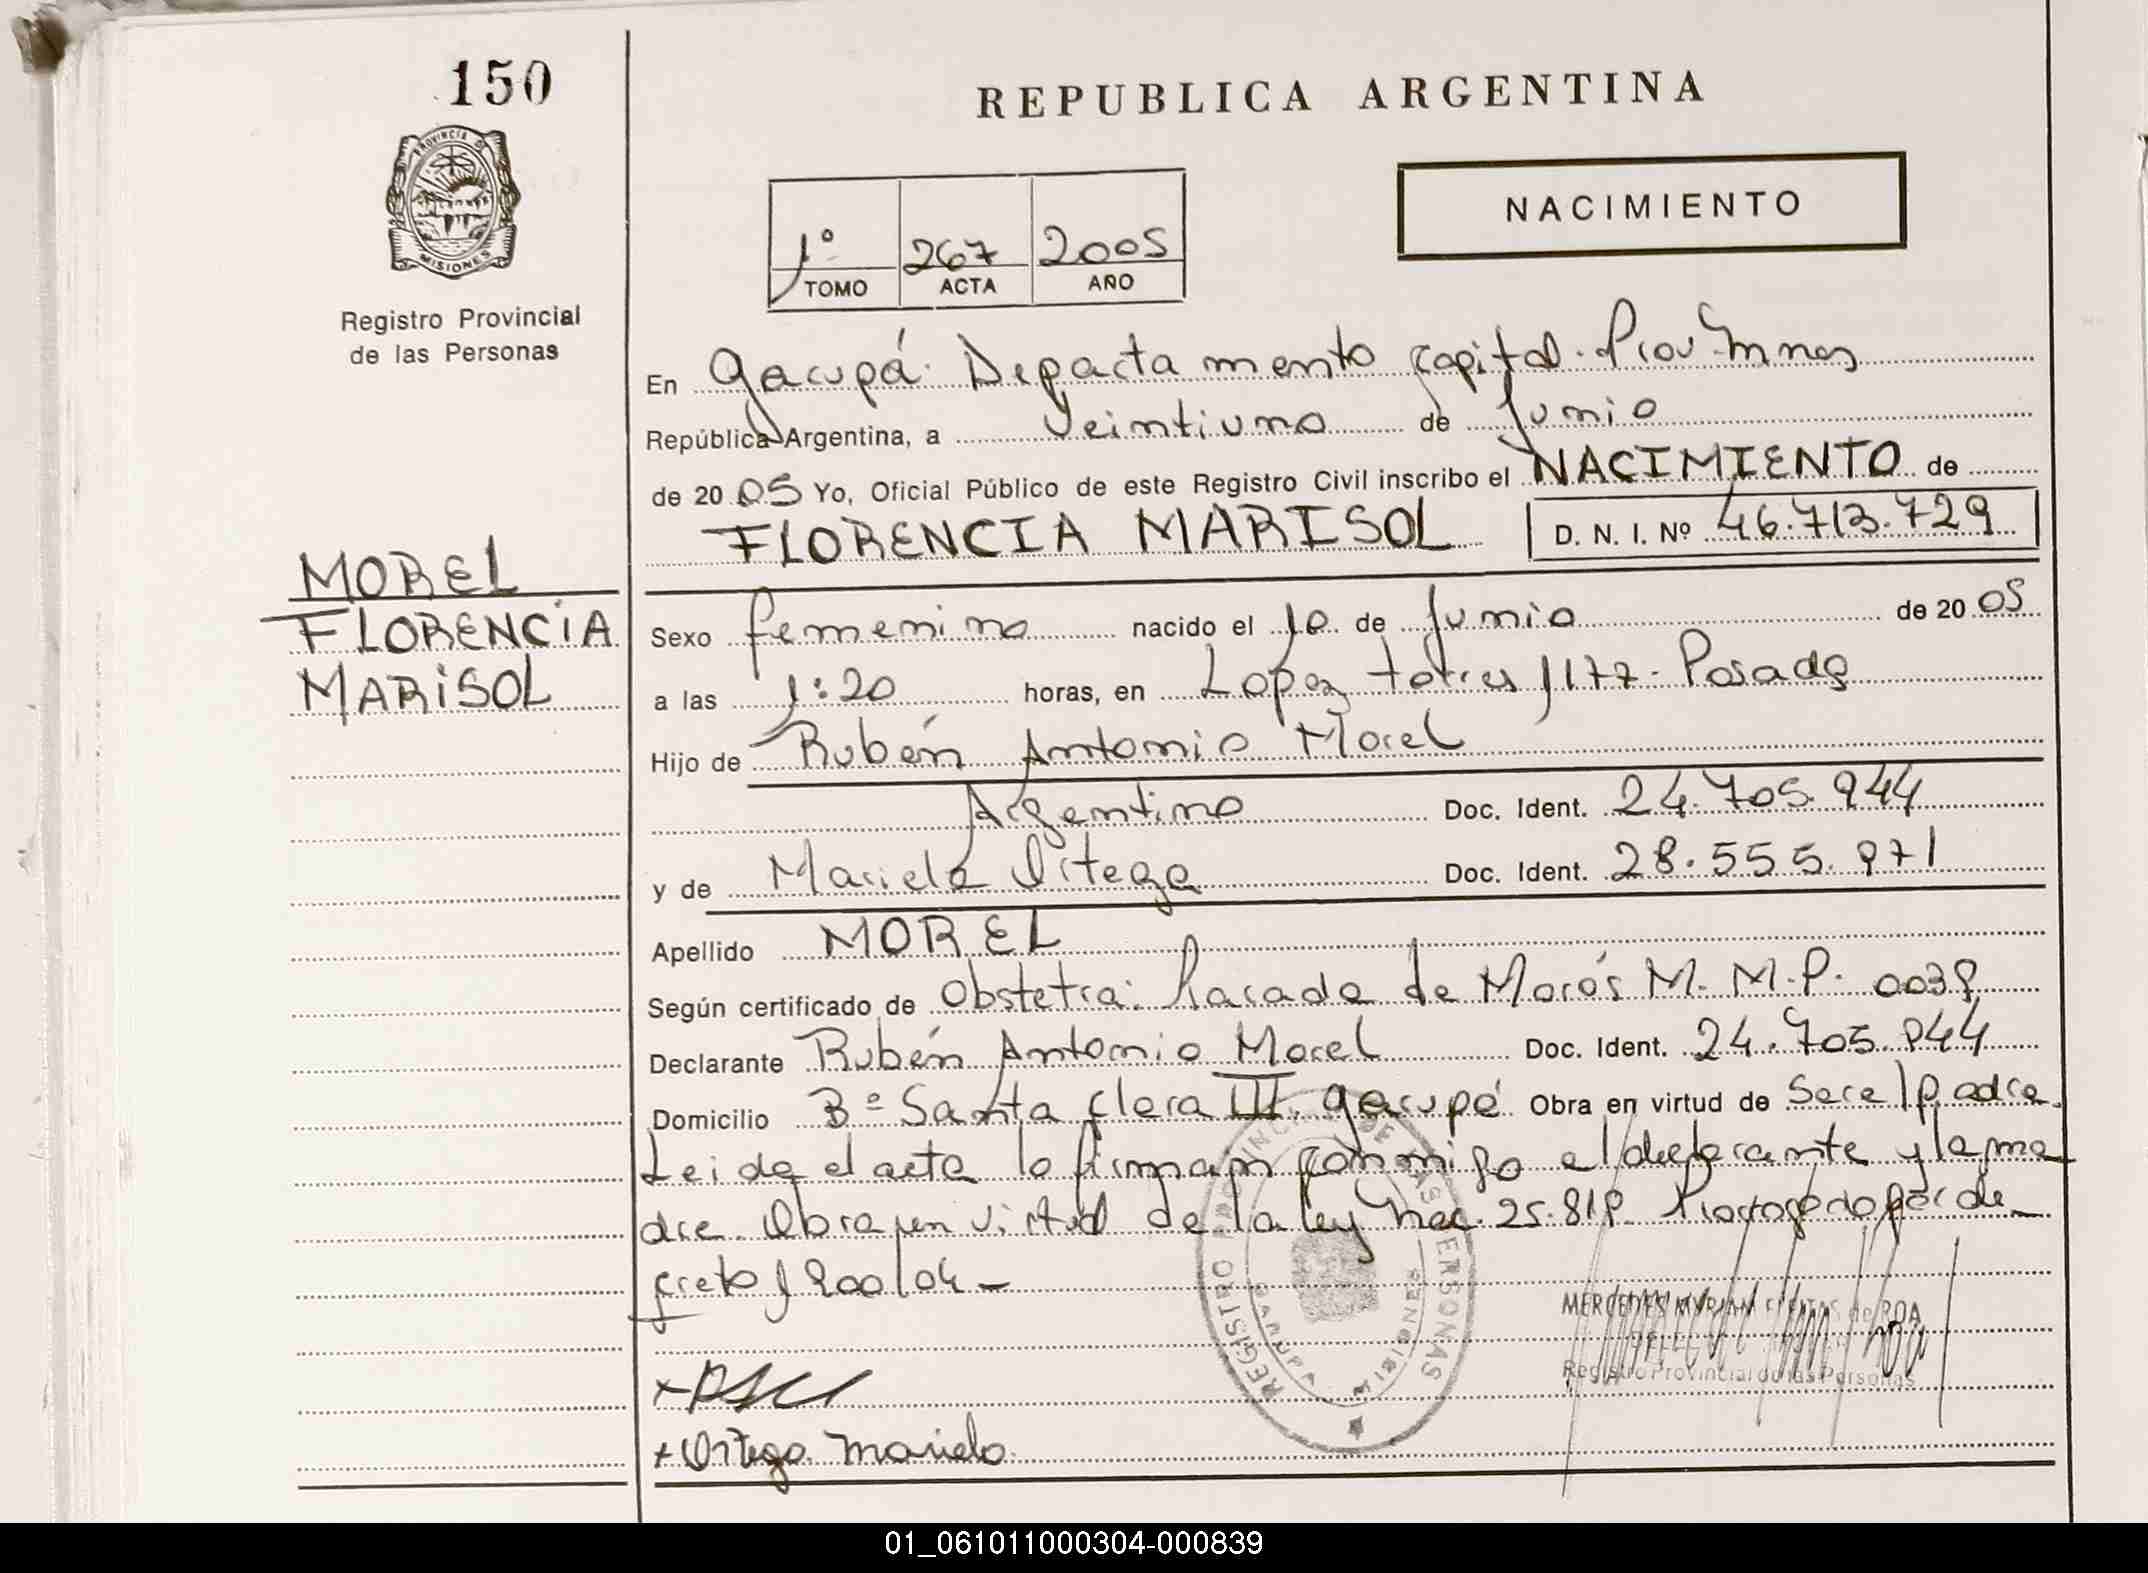 150
REPUBLICA ARGENTINA
PROVINCIA D
MISIONES
NACIMIENTO
1º 267 2005
TOMO ACTA AÑO
Registro Provincial
de las Personas
En Garupá. Departamento Capital. Prov. Mnes
República Argentina, a Veintiuno de Junio
de 2005 Yo, Oficial Público de este Registro Civil inscribo el NACIMIENTO de
FLORENCIA MARISOL D. N. I. Nº 46.713.729
MOREL
FLORENCIA
MARISOL
Sexo femenino nacido el 10 de Junio de 2005
a las 1:20 horas, en Lopez torres 1177 - Posadas
Hijo de Rubén Antonio Morel
Argentino Doc. Ident. 24.705.944
y de Mariela Ortega Doc. Ident. 28.555.971
Apellido MOREL
Según certificado de Obstetra: de M. M.P. 0039
Declarante Rubén Antonio Morel Doc. Ident. 24.705.944
Domicilio Bº Santa Clara III. Garupá Obra en virtud de Ser el padre.
Leida el acta la firman conmigo el declarante y la ma
dre. Obra en virtud de la ley Nac. 25.819. Prorrogado por de_
creto 1900/04 -
REGISTRO PROVINCIAL DE LAS PERSONAS
GARUPA MISIONES
MERCEDES MYRIAM de ROA
Registro Provincial de las Personas
+ Ortega Mariela
01_061011000304-000839